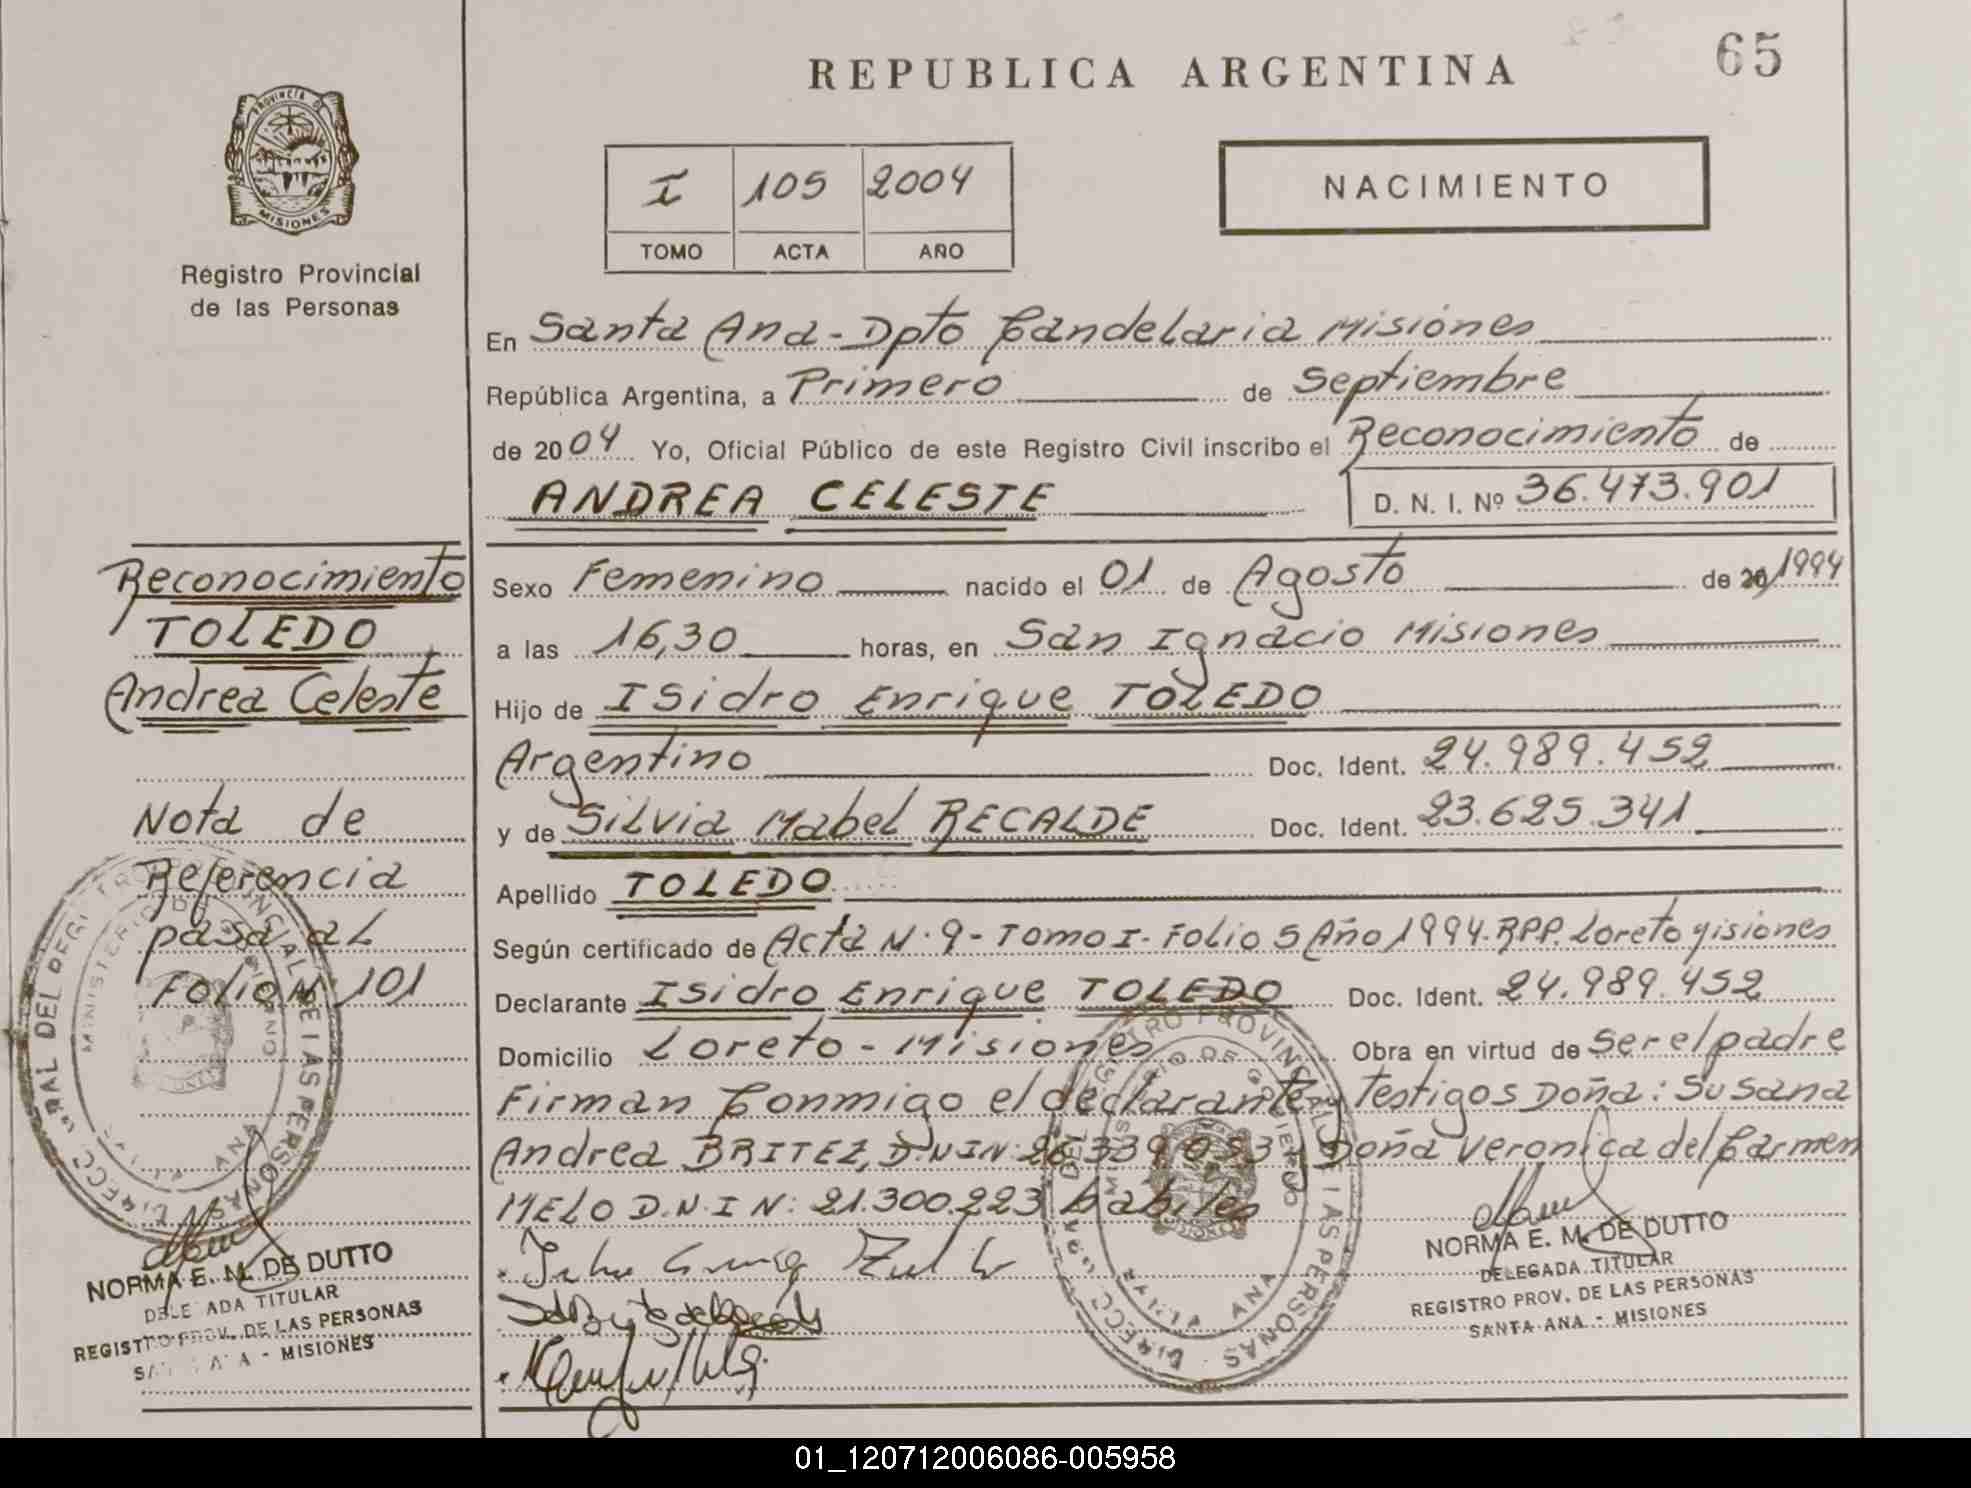 65
REPUBLICA ARGENTINA
PROVINCIA DE
MISIONES
Registro Provincial
de las Personas
I 105 2004
TOMO ACTA AÑO
NACIMIENTO
En Santa Ana - Dpto Candelaria Misiones
República Argentina, a Primero de Septiembre
de 2004 Yo, Oficial Público de este Registro Civil inscribo el Reconocimiento de
ANDREA CELESTE D. N. I. Nº 36.473.901
Sexo Femenino nacido el 01 de Agosto de 20 1994
a las 16,30 horas, en San Ignacio Misiones
Hijo de Isidro Enrique TOLEDO
Argentino Doc. Ident. 24.989.452
y de Silvia Mabel RECALDE Doc. Ident. 23.625.341
Apellido TOLEDO
Según certificado de Acta N. 9 - Tomo I - Folio 5 Año 1994. RPP. Loreto Misiones
Declarante Isidro Enrique TOLEDO Doc. Ident. 24.989.452
Domicilio Loreto - Misiones Obra en virtud de ser el padre
Firman Conmigo el declarante y Testigos Doña: Susana
Andrea BRITEZ, D.N.I N: 26.339.053 y Doña Veronica del Carmen
MELO D.N.I N: 21.300.223 habiles
Reconocimiento
TOLEDO
Andrea Celeste
Nota de
Referencia
pasa al
Folio N. 101
NORMA E. M. DE DUTTO
DELEGADA TITULAR
REGISTRO PROV. DE LAS PERSONAS
SANTA ANA - MISIONES
NORMA E. M. DE DUTTO
DELEGADA TITULAR
REGISTRO PROV. DE LAS PERSONAS
SANTA ANA - MISIONES
01_120712006086-005958